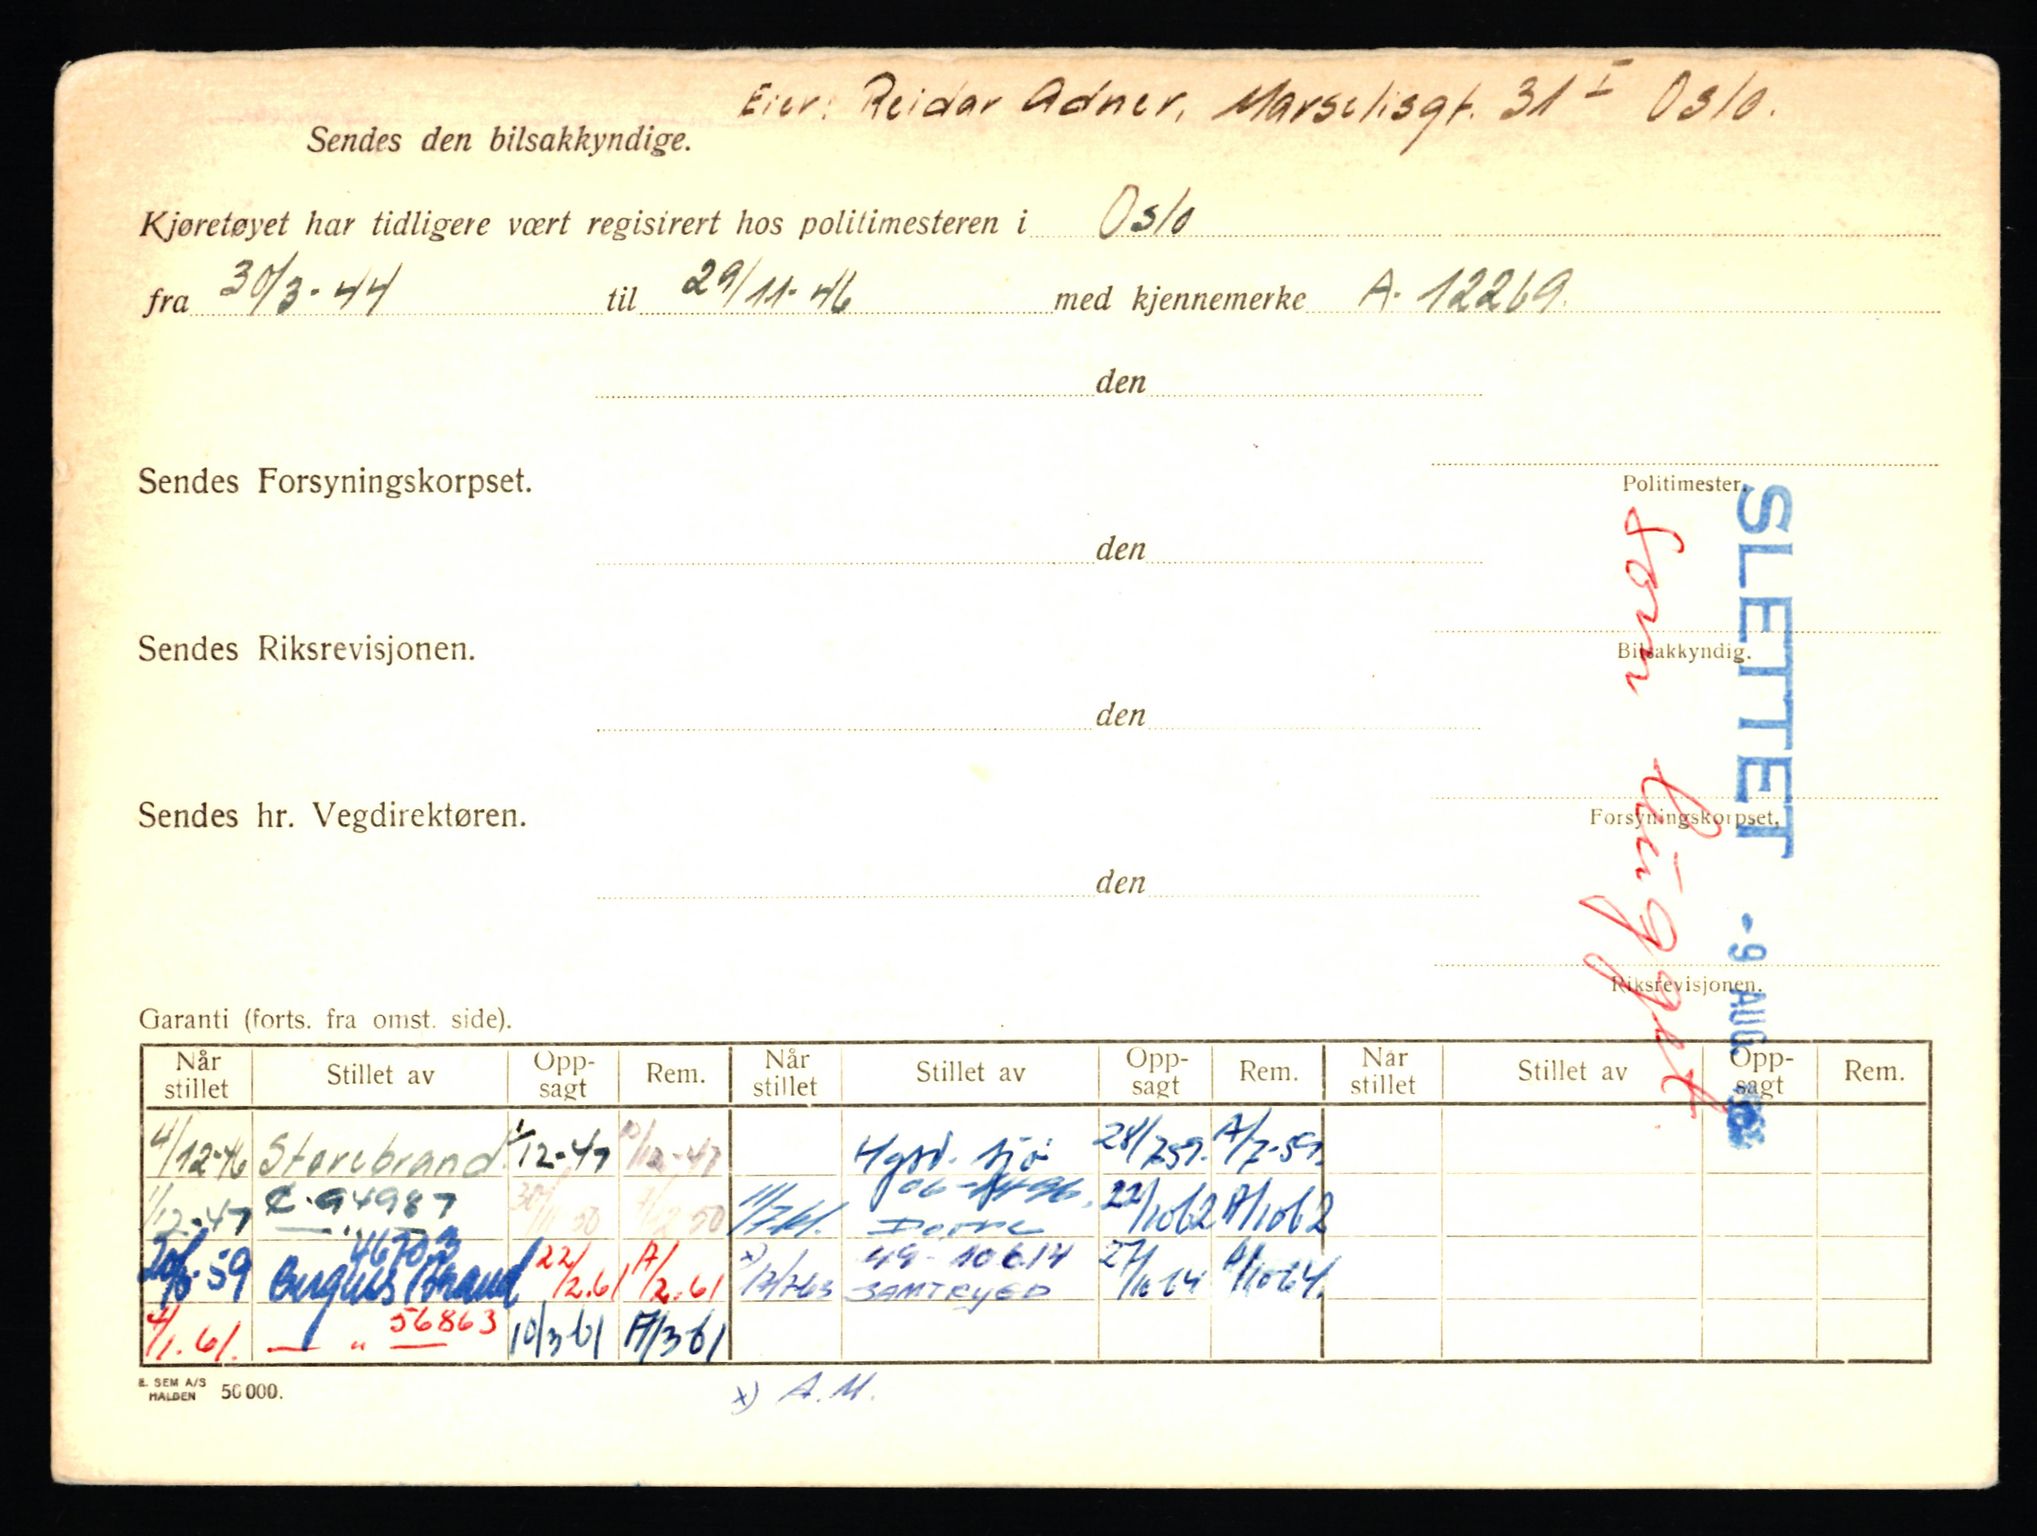 Eier: Reidar Adner, Marselisgt. 31 I Oslo.
Sendes den bilsakkyndige.
Kjøretøyet har tidligere vært registrert hos politimesteren i Oslo
fra 30/3-44 til 29/11-46 med kjennemerke A-12269.
den
Politimester.
Sendes Forsyningskorpset.
den
Bilsakkyndig.
Sendes Riksrevisjonen.
den
Forsyningskorpset.
Sendes hr. Vegdirektøren.
den
Riksrevisjonen.
SLETTET
-9 AUG
Som hugget
Garanti (forts. fra omst. side).
Når stillet Stillet av Opp-sagt Rem. Når stillet Stillet av Opp-sagt Rem. Når stillet Stillet av Opp-sagt Rem.
4/12-46 Storebrand 1/12-47 10/12-47 28/7-59. A/7-59.
1/12-47 94987 11/7-61. 22/10 62 A/10 62
-59 46703 Brand 22/2.61 A/2.61 x) 17/7-63 49-10614 SAMTRYGD 27/10 64 A/10 64.
4/1.61. — " — 56863 10/3 61 A/3 61
E. SEM A/S
HALDEN 50 000.
x) A.M.